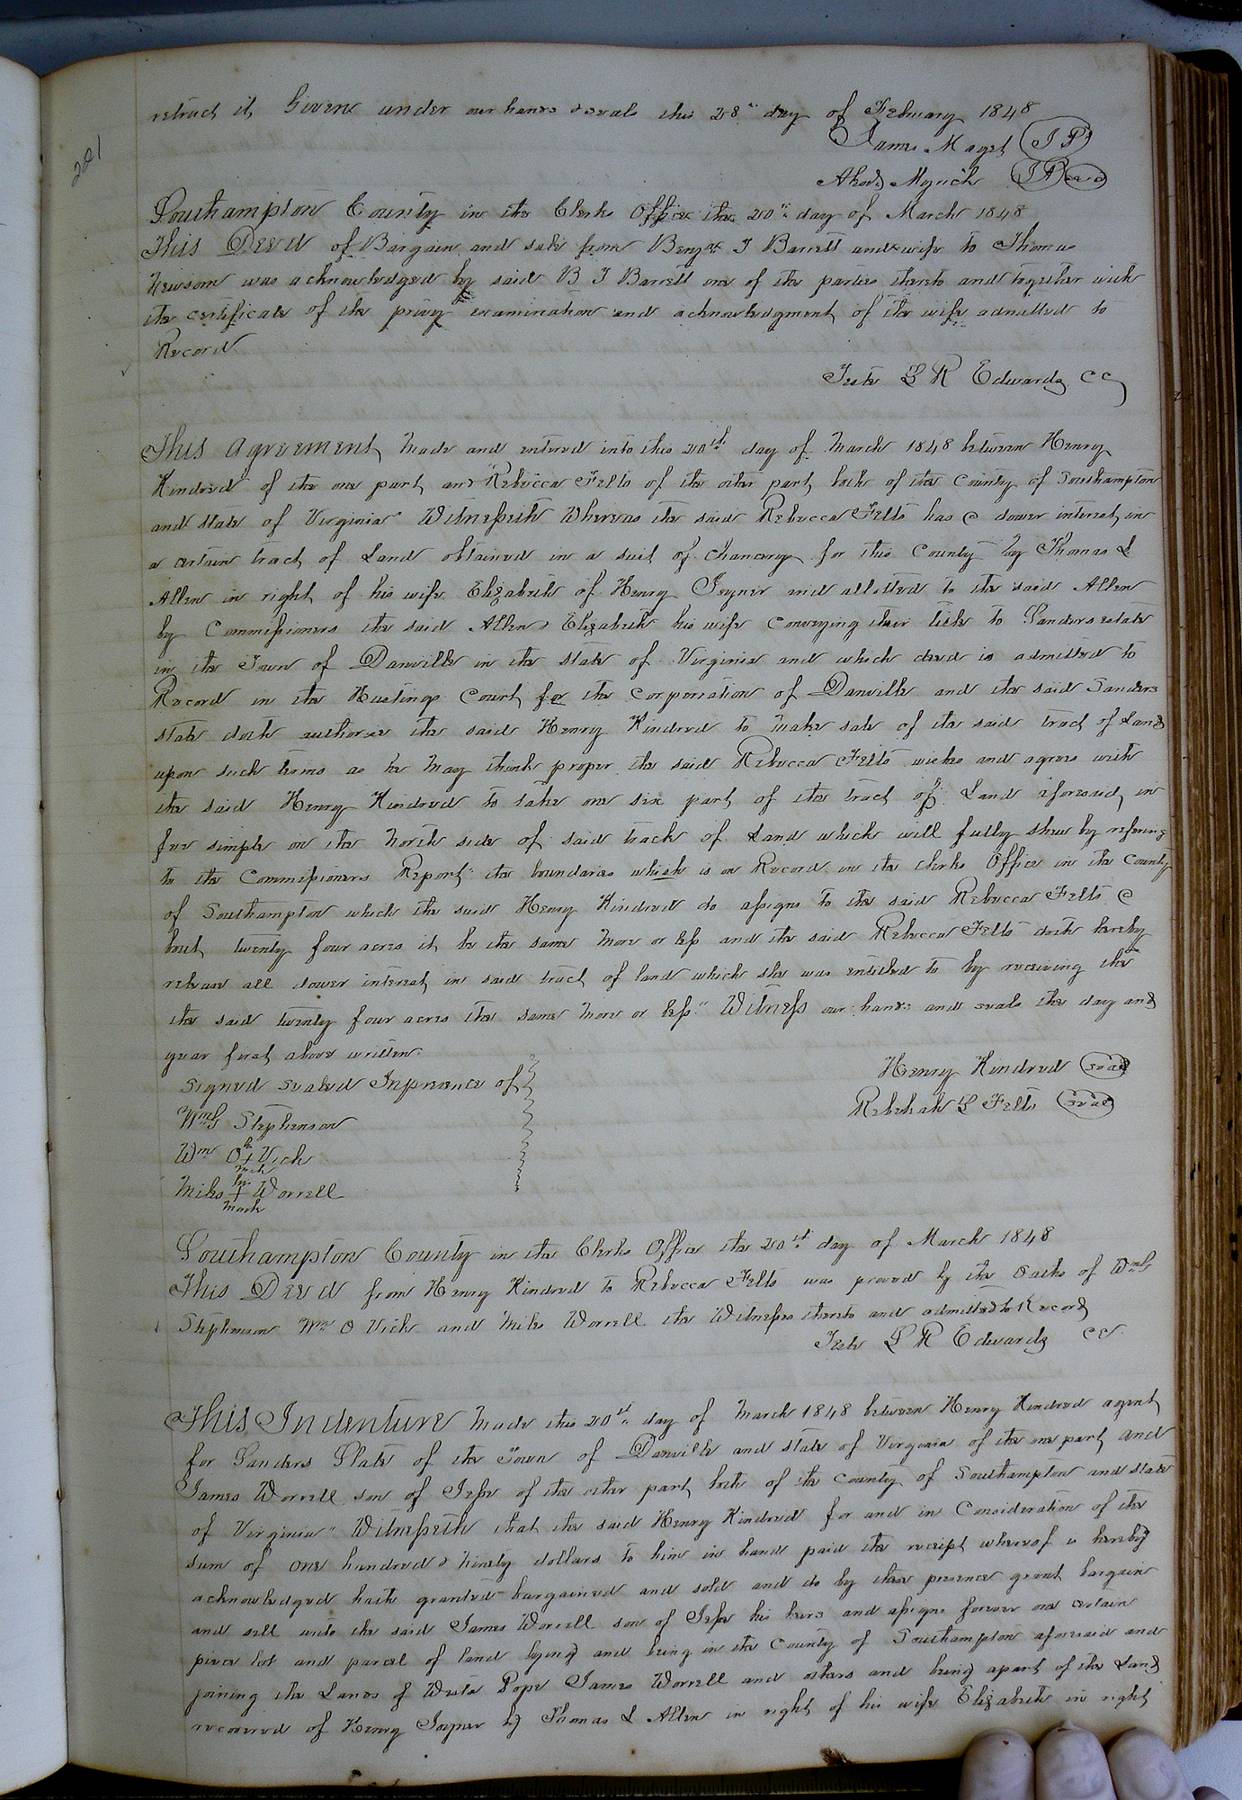 retract it Given under our hands & seals this 28th day of February 1848
James Maget (J P)
221
Southampton County in the Clerks Office the 20th day of March 1848
This Deed of Bargain and sale from Benjn J Barrett and wife to Thomas
Newsom was acknowledged by said B J Barrett one of the parties thereto and together with
the certificate of the privy examination and acknowledgment of the wife admitted to
Record
Teste L R Edwards CC
This Agreement Made and entered into this 20th day of March 1848 between Henry
Kindred of the one part and Rebecca Felts of the other part both of the County of Southampton
and State of Virginia Witnesseth Whereas the said Rebecca Felts has a dower interest in
a certain tract of Land obtained in a suit of Chancery for this County by Thomas L
Allen in right of his wife Elizabeth of Henry Joyner and allotted to the said Allen
by Commissioners the said Allen & Elizabeth his wife Conveying their title to Sanders state
in the Town of Danville in the state of Virginia and which deed is admitted to
Record in the Hustings Court for the Corporation of Danville and the said Sanders
state doth authorise the said Henry Kindred to make sale of the said tract of Land
upon such terms as he may think proper the said Rebecca Felts wishes and agrees with
the said Henry Kindred to take one six part of the tract of Land aforesaid in
fee simple on the North side of said track of Land which will fully shew by refering
to the Commissioners Report the boundaries which is on Record in the clerks Office in the County
of Southampton which the said Henry Kindred do assigns to the said Rebecca Felts a
bout twenty four acres it be the same more or less and the said Rebecca Felts doth hereby
release all dower interest in said tract of land which she was entitled to by receiving the
the said twenty four acres the same more or less Witness our hands and seals the day and
year first above written
Signed sealed In presence of
Henry Kindred (seal)
Rebekah L Felts (seal)
Wm S Stephenson
Wm O his + mark Vick
Miles his + mark Worrell
Southampton County in the Clerks Office the 20th day of March 1848
This Deed from Henry Kindred to Rebecca Felts was proved by the Oaths of Wm S
Stephenson Wm O Vick and Miles Worrell the Witnesses thereto and admitted to Record
Teste L R Edwards CC
This Indenture Made this 20th day of March 1848 between Henry Kindred agent
for Sanders Slate of the Town of Danville and state of Virginia of the one part and
James Worrell son of Jesse of the other part both of the County of Southampton and state
of Virginia" Witnesseth that the said Henry Kindred for and in Consideration of the
sum of one hundred & Ninety dollars to him in hand paid the receipt whereof is hereby
acknowledged hath granted bargained and sold and do by these presence grant bargain
and sell unto the said James Worrell son of Jesse his heirs and assigns forever one certain
piece lot and parcel of land lying and being in the County of Southampton aforesaid and
joining the Lands of Pope James Worrell and others and being apart of the Land
recovered of Henry Joyner by Thomas L Allen in right of his wife Elizabeth in right